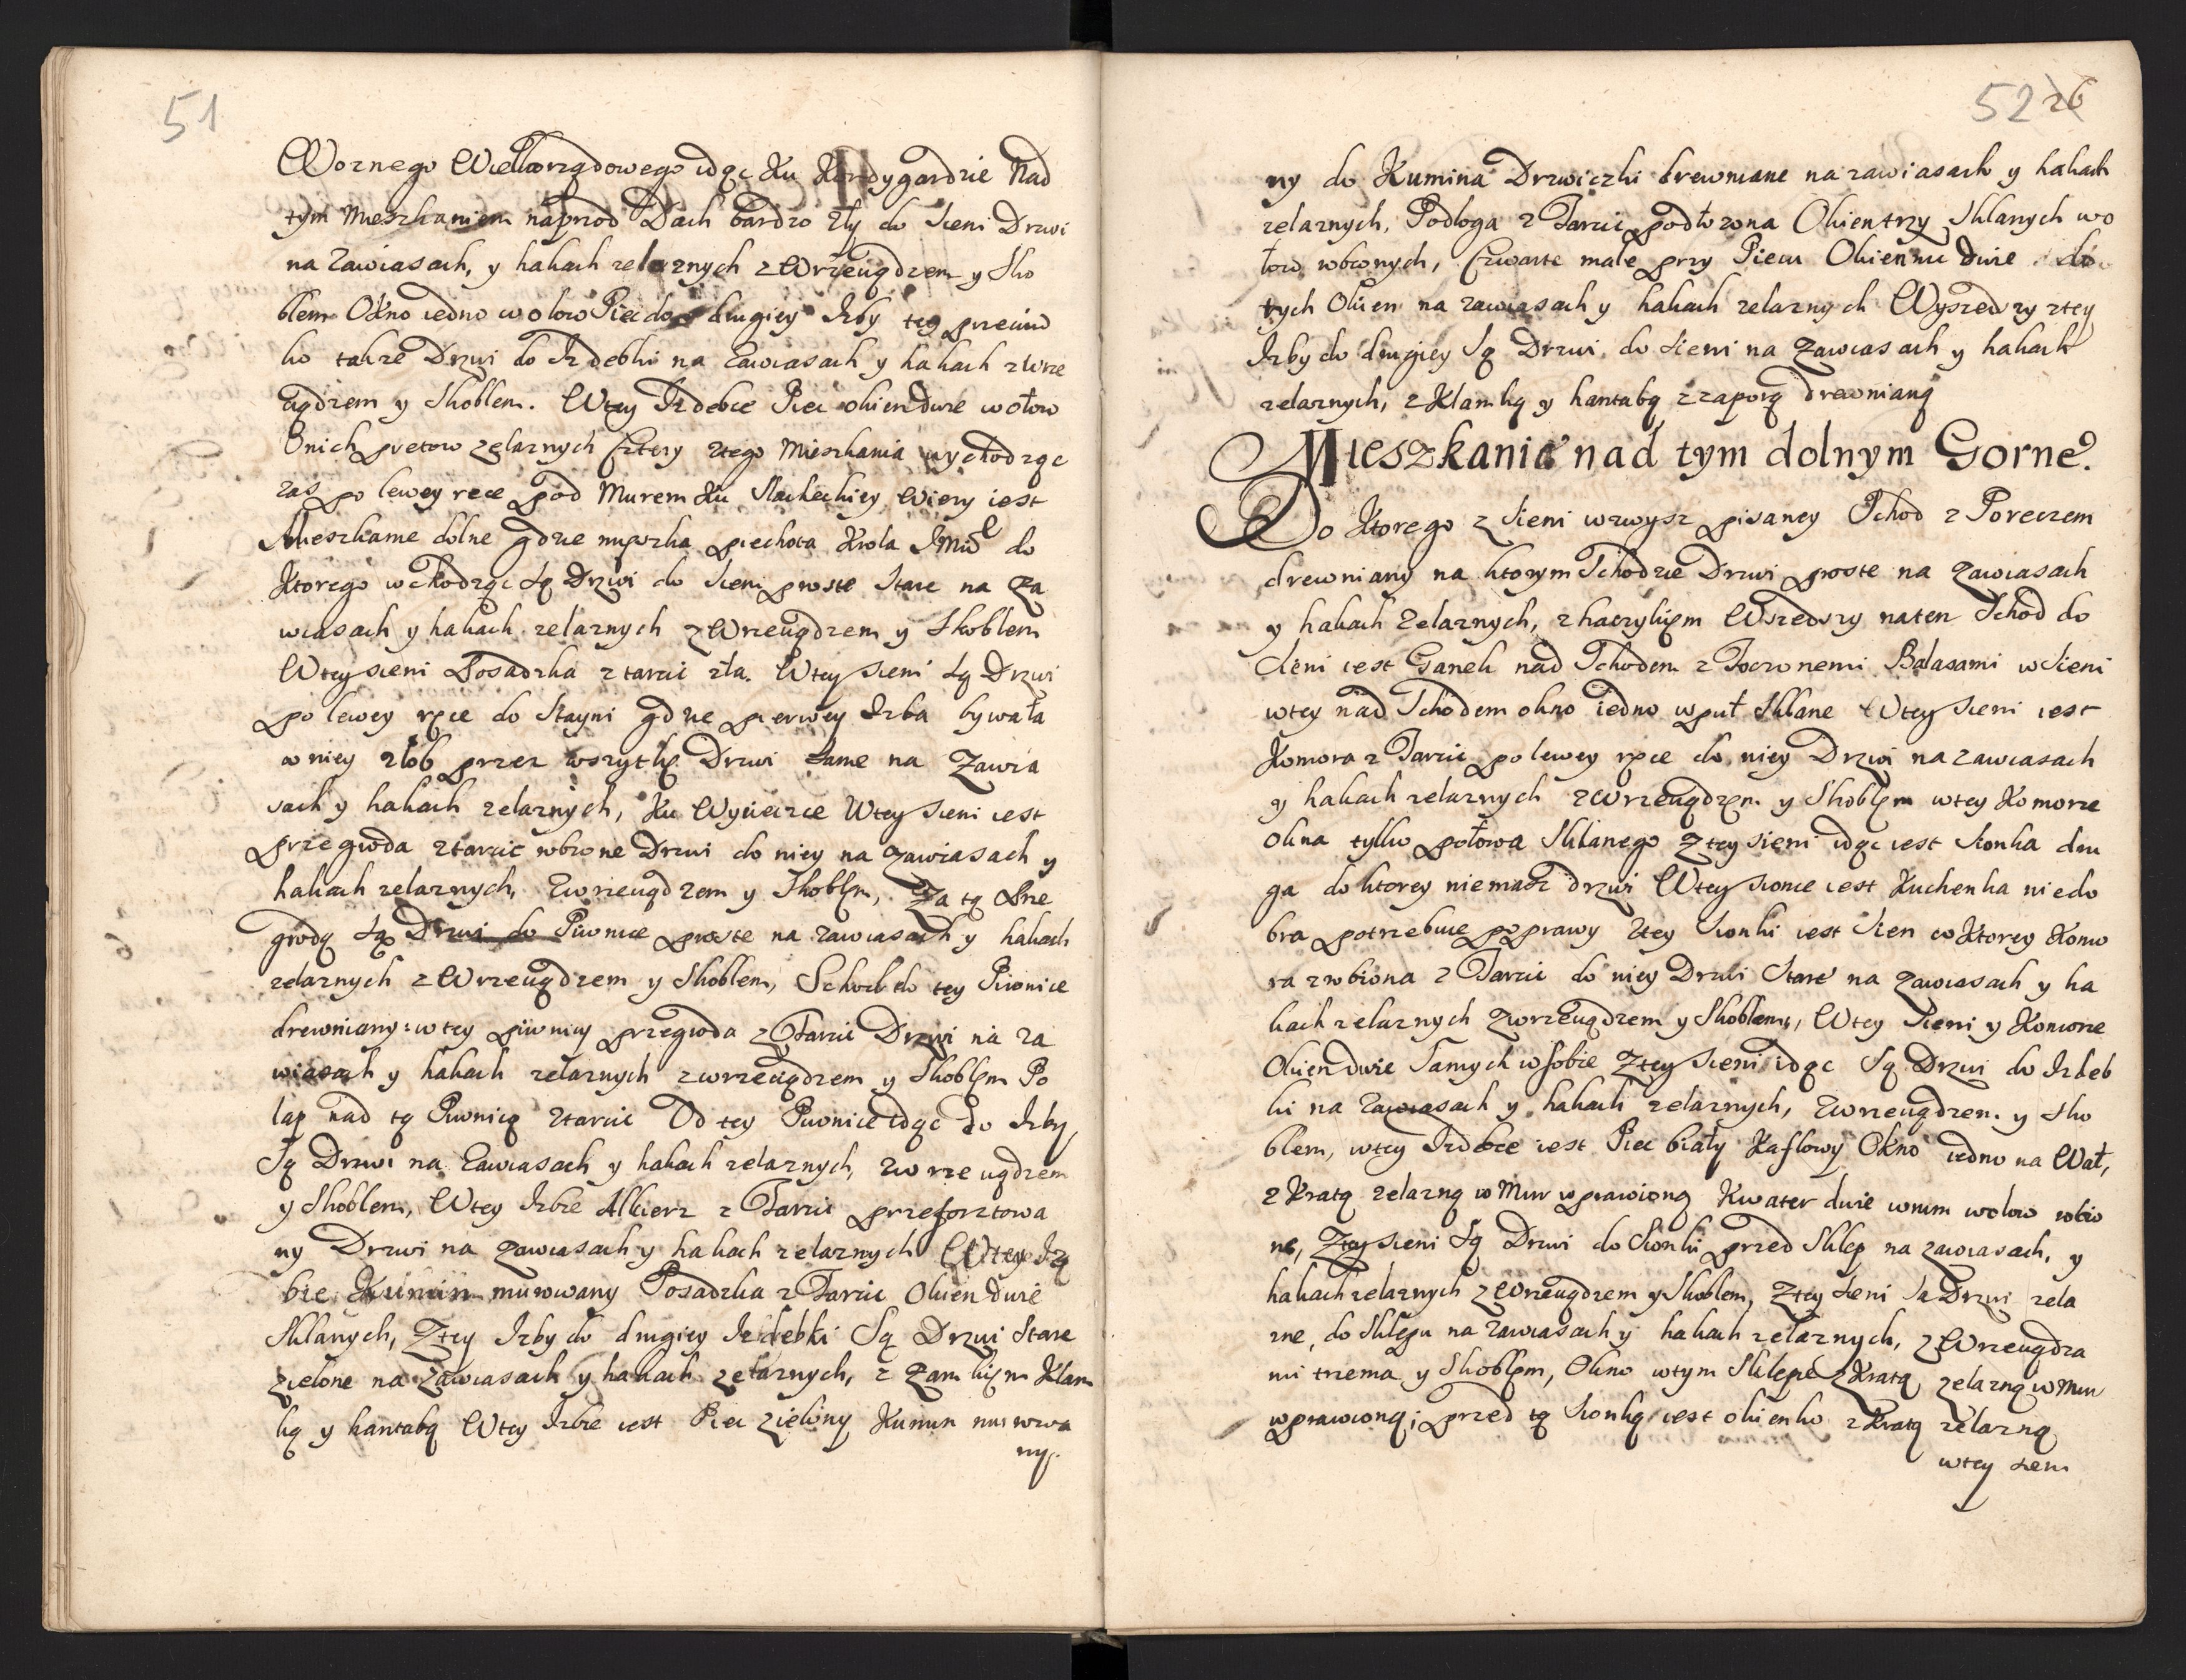 51
Woznego Wielkorządowego idąc Ku Kordygardzie Nad
tym Mieszkaniem naprzod Dach bardzo zły do sieni Drzwi
na zawiasach, y hakach zelaznych z Wrzeuądzem y Sko
blem Okno iedno w olow Piec do drugiey Izby tey przeciw
ko takze Drzwi do Izdebki na zawiasach y hakach z wrze
uądzem y Skoblem. Wtey Izdebce Piec okien dwie w ołow
Unich pretow zelaznych Cztery ztego Mieszkania wychodząc
zas po lewey rece pod Murem Ku Slacheckiey Wiezy iest
Mieszkanie dolne gdzie mięszka piechota Krola JMci do
Ktorego wchodząc są Drzwi do sieni proste Stare na Za
wiasach y hakach zelaznych z Wrzeuądzem y Skoblem
Wtey sieni Posadzka z tarcic zła. Wtey sieni są Drzwi
po lewey ręce do Stayni gdzie pierwey Izba bywała
w niey złob przez wszytkę Drzwi same na Zawia
sach y hakach zelaznych, Ku Wycieczce Wtey sieni iest
przegroda ztarcic robione Drzwi do niey na zawiasach y
hakach zelaznych, zwrzeuądzem y Skoblem, Za tą Prze
grodą są Drzwi do Piwnice proste na zawiasach y hakach
zelaznych z Wrzeuądzem y Skoblem, Schod do tey Piwnice
drewniany: wtey piwnicy przegroda z Tarcic Drzwi na za
wiasach y hakach zelaznych z wrzeuądzem y Skoblem Po
lap nad tą Piwnicą ztarcic Od tey Piwnice idąc do Izby
Są Drzwi na Zawiasach y hakach zelaznych, zwrzeuądzem
y Skoblem, Wtey Izbie Alkierz z Tarcic przeforztowa
ny Drzwi na zawiasach y hakach zelaznych Wtey Iz
bie Kumin murowany Posadzka z Tarcic Okien dwie
Sklanych, Ztey Izby do drugiey Izdebki Są Drzwi Stare
zielone na zawiasach y hakach zelaznych, z Zamkiem Klam
ką y hantabą Wtey Izbie iest Piec zielony Kumin murowa
ny.
52 26
ny do Kumina Drzwiczki drewniane na zawiasach y hakach
zelaznych, Podloga z Tarcic podłozona Okien trzy Sklanych wo
łow robionych, Czwarte małe przy Piecu Okiennic dwie do
tych Okien na zawiasach y hakach zelaznych Wyszedszy ztey
Izby do drugiey Są Drzwi do sieni na Zawiasach y hakach
zelaznych, z Klamką y hantabą z zaporą drewnianą
Mieszkanie nad tym dolnym Gorne.
Do Ktorego z sieni wzwysz pisaney Schod z Poreczem
drewniany na ktorym Schodzie Drzwi proste na Zawiasach
y hakach zelaznych, z haczykiem Wszedszy na ten Schod do
sieni iest Ganek nad Schodem z Toczonemi Balasami w sieni
wtey nad Schodem okno iedno wpuł Sklane Wtey sieni iest
Komora z Tarcic po lewey ręce do niey Drzwi na zawiasach
y hakach zelaznych z Wrzeuądzem y Skoblem wtey Komorze
okna tylko połowa Sklanego Ztey sieni idąc iest Sionka dru
ga do ktorey niemasz drzwi Wtey sionce iest Kuchenka niedo
bra potrzebuie poprawy Ztey Sionki iest Sien w Ktorey Komo
ra zrobiona z Tarcic do niey Drzwi Stare na zawiasach y ha
kach zelaznych zwrzeuądzem y Skoblem, Wtey Sieni y Komorze
Okien dwie samych w sobie Ztey sieni idąc Są Drzwi do Izdeb
ki na Zawiasach y hakach zelaznych, zwrzeuądzem y Sko
blem, wtey Izdebce iest Piec biały Kaflowy Okno iedno na Wał,
z Kratą zelazną w Mur wprawioną Kwater dwie wnim wolow robio
ne, Ztey sieni Są Drzwi do Sionki przed Sklep na zawiasach, y
hakach zelaznych z Wrzeuądzem y Skoblem, Ztey sieni sa Drzwi zela
zne, do Sklepu na zawiasach y hakach zelaznych, z Wrzeuądza
mi trzema y Skoblem, Okno wtym Sklepie z Kratą zelazną w Mur
wprawioną; przed tą Sionką iest okienko z Kratą zelazną
wtey sieni